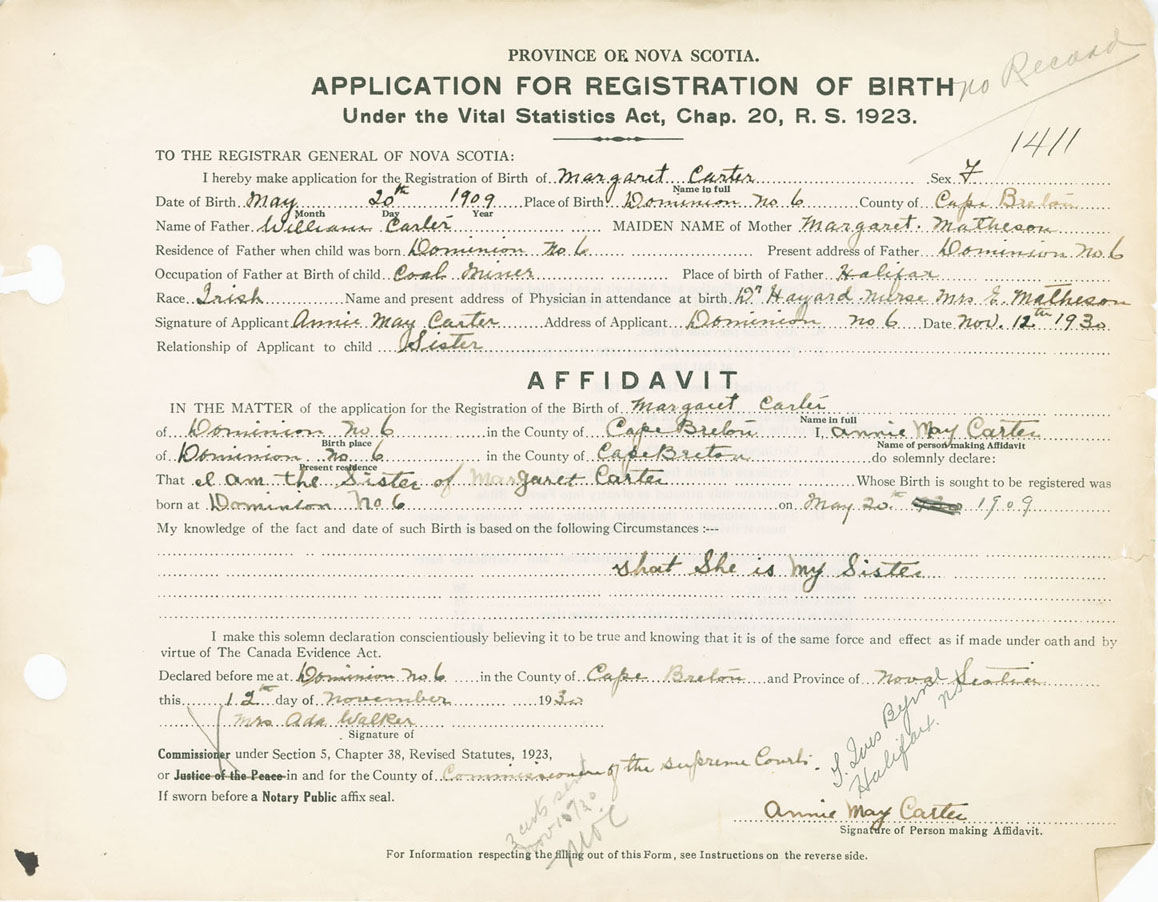 PROVINCE OF NOVA SCOTIA.
no Record
APPLICATION FOR REGISTRATION OF BIRTH
Under the Vital Statistics Act, Chap. 20, R. S. 1923.
1411
TO THE REGISTRAR GENERAL OF NOVA SCOTIA:
I hereby make application for the Registration of Birth of Margaret Carter Sex F
Name in full
Date of Birth May 20th 1909 Place of Birth Dominion No 6 County of Cape Breton
Month Day Year
Name of Father William Carter MAIDEN NAME of Mother Margaret. Matheson
Residence of Father when child was born Dominion No 6 Present address of Father Dominion No 6
Occupation of Father at Birth of child Coal Miner Place of birth of Father Halifax
Race. Irish Name and present address of Physician in attendance at birth Dr Hayard nurse Mrs E. Matheson
Signature of Applicant Annie May Carter Address of Applicant Dominion no 6 Date Nov. 12th 1930
Relationship of Applicant to child Sister
AFFIDAVIT
IN THE MATTER of the application for the Registration of the Birth of Margaret Carter
Name in full
of Dominion No 6 in the County of Cape Breton I, Annie May Carter
Birth place Name of person making Affidavit
of Dominion No 6 in the County of Cape Breton do solemnly declare:
Present residence
That I am the Sister of Margaret Carter Whose Birth is sought to be registered was
born at Dominion No 6 on May 20th 1909
My knowledge of the fact and date of such Birth is based on the following Circumstances :---
that She is My Sister
I make this solemn declaration conscientiously believing it to be true and knowing that it is of the same force and effect as if made under oath and by
virtue of The Canada Evidence Act.
Declared before me at Dominion No 6 in the County of Cape Breton and Province of Nova Scotia
this 12th day of November 1930
Mrs Ada Walker
Signature of
Commissioner under Section 5, Chapter 38, Revised Statutes, 1923,
or Justice of the Peace in and for the County of Commissioner of the Supreme Court.
Halifax. NS
If sworn before a Notary Public affix seal.
Annie May Carter
Signature of Person making Affidavit.
For Information respecting the filling out of this Form, see Instructions on the reverse side.